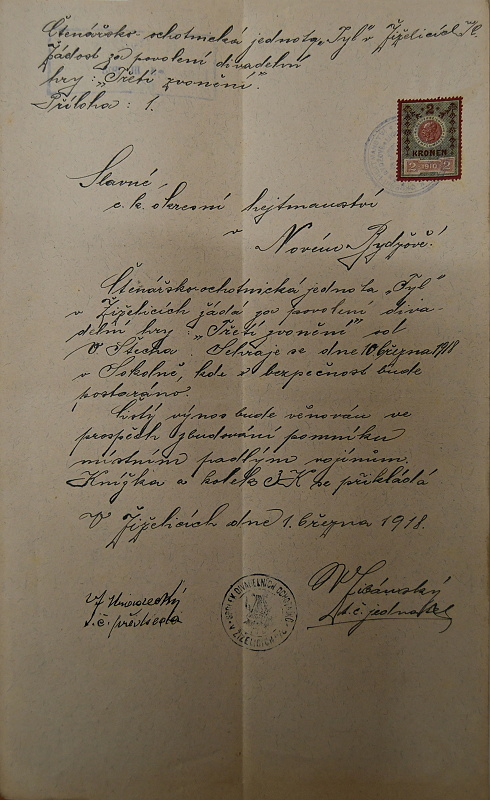 Čtenářsko-ochotnická jednota „Tyl“ v Žiželicích
žádost za povolení divadelní
hry: „Třetí zvonění“.
Příloha: 1.
2
KRONEN
2 1910 2
Slavné
c. k. okresní hejtmanství
v
Novém Bydžově!
Čtenářsko-ochotnická jednota „Tyl“
v Žiželicích žádá za povolení diva-
delní hry: „Třetí zvonění“ od
V Štecha. Sehraje se dne 10. března 1918
v Sokolně, kde o bezpečnost bude
postaráno.
Čistý výnos bude věnován ve
prospěch zbudování pomníku
místním padlým vojínům.
Knížka a kolek K se přikládá
V Žiželicích dne 1. března 1918.
t. č. předseda
t. č. jednatel
SPOLEK DIVADELNÍCH OCHOTNÍKŮ
V ŽIŽELICÍCH